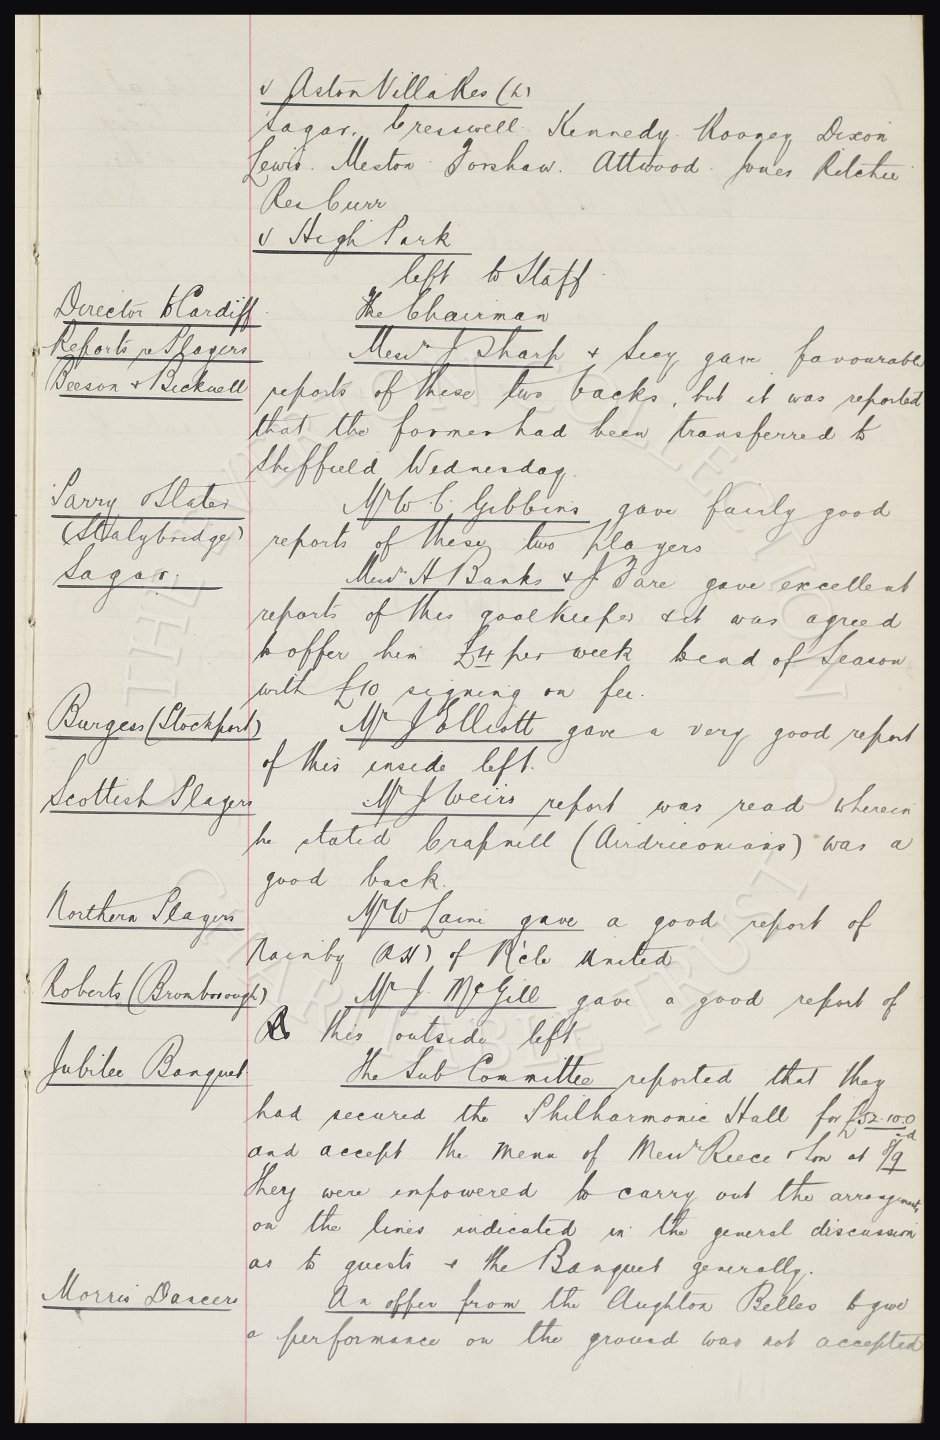 v Aston Villa Res (h)
Sagar. Cresswell. Kennedy. Rooney Dixon
Lewis. Meston Forshaw. Attwood Jones Ritchie
Res Curr
v High Park
left to Staff
Director to Cardiff The Chairman
Reports re Players Messrs J Sharp & Secy gave favourable
Beeson & Bicknell reports of these two backs, but it was reported
that the former had been transferred to
Sheffield Wednesday.
Parry & Slater Mr W C Gibbins gave fairly good
(Stalybridge) reports of these two players
Sagar. Messrs A Banks & J Fare gave excellent
reports of this goalkeeper & it was agreed
to offer him £4 per week to end of Season
with £10 signing on fee.
Burgess (Stockport) Mr J Elliott gave a very good report
of this inside left.
Scottish Players Mr J Weirs report was read wherein
he stated Crapnell (Airdrieonians) was a
good back.
Northern Players Mr W Laini gave a good report of
(OH) of United
Roberts (Bromborough) Mr J. McGill gave a good report of
this outside left.
Jubilee Banquet The Sub Committee reported that they
had secured the Philharmonic Hall for £52.10.0
and accept the menu of Messrs Reece & Son at 8/9d
They were empowered to carry out the arrangements
on the lines indicated in the general discussion
as to guests & the Banquet generally.
Morris Dancers An offer from the Aughton Belles to give
a performance on the ground was not accepted